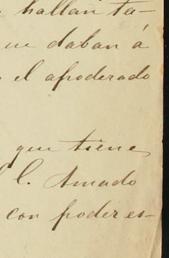 hallan ta-
ue daban á
el apoderado
que tiene
C. Amado
con poder es-